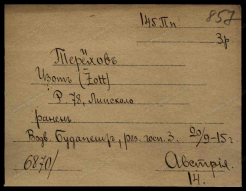 145 Пп 857
3р
Терёховъ
Изотъ (Zott)
Р. 78, Линскаго
раненъ
Водв. Будапешт, рез. госп. 3. 20/9-15 г.
6870/ Австрія.
14.